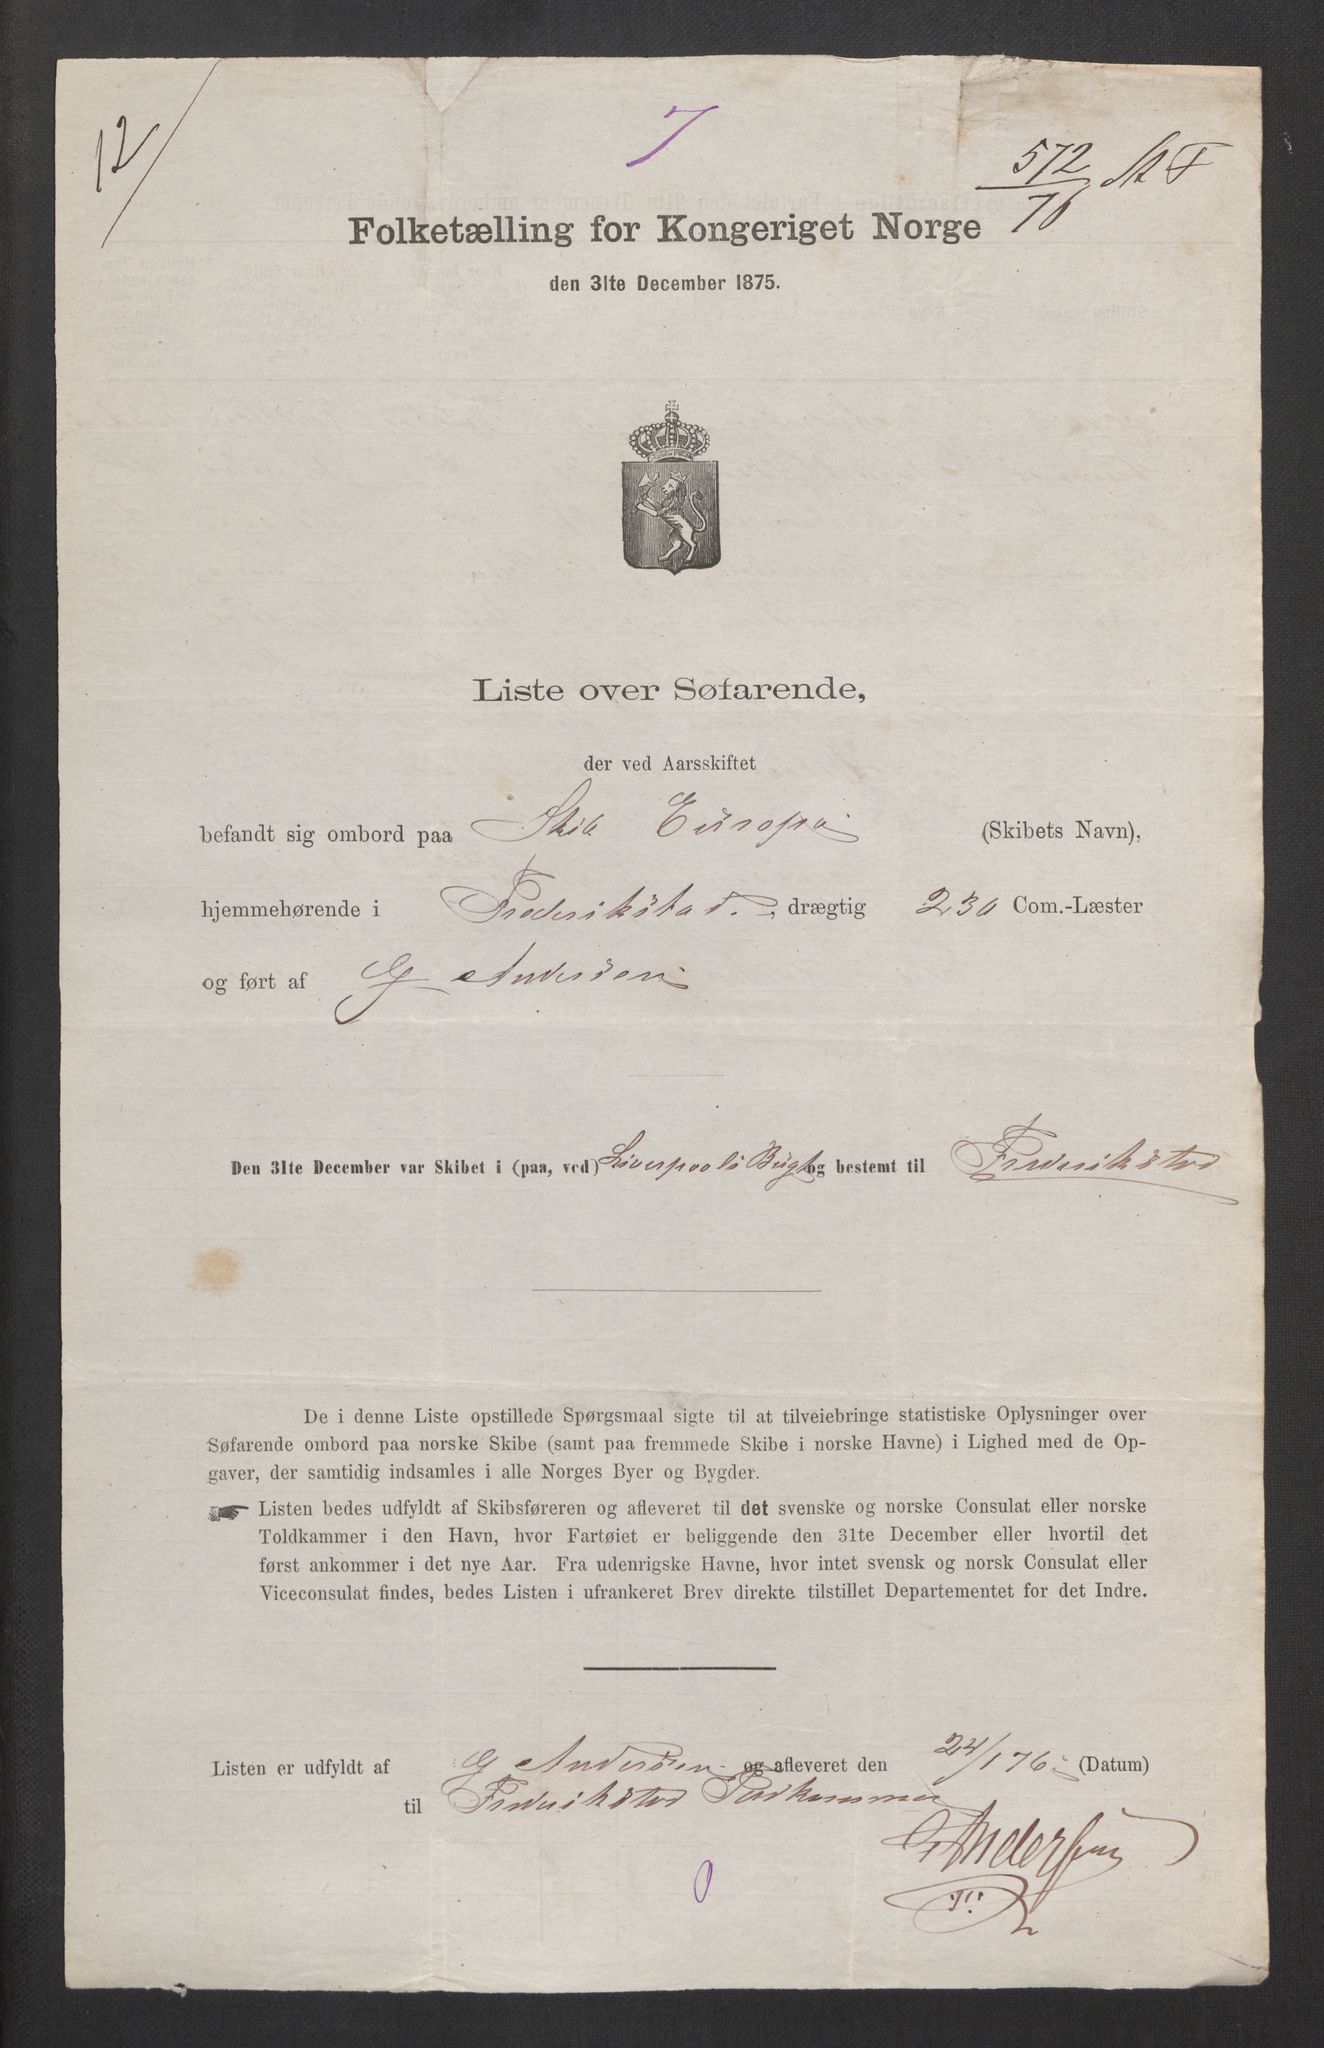 12
7
572
76
Folketælling for Kongeriget Norge
den 31te December 1875.
Liste over Søfarende,
der ved Aarsskiftet
befandt sig ombord paa Skib Europa (Skibets Navn),
hjemmehørende i Frederikstad, drægtig 230 Com.-Læster
og ført af G Andersen
Den 31te December var Skibet i (paa, ved) Liverpools Bugt og bestemt til Frederikstad
De i denne Liste opstillede Spørgsmaal sigte til at tilveiebringe statistiske Oplysninger over
Søfarende ombord paa norske Skibe (samt paa fremmede Skibe i norske Havne) i Lighed med de Op-
gaver, der samtidig indsamles i alle Norges Byer og Bygder.
☛ Listen bedes udfyldt af Skibsføreren og afleveret til det svenske og norske Consulat eller norske
Toldkammer i den Havn, hvor Fartøiet er beliggende den 31te December eller hvortil det
først ankommer i det nye Aar. Fra udenrigske Havne, hvor intet svensk og norsk Consulat eller
Viceconsulat findes, bedes Listen i ufrankeret Brev direkte tilstillet Departementet for det Indre.
Listen er udfyldt af G Andersen og afleveret den 24/1 76 (Datum)
til Frederikstad Toldkammer
G Anderssen
0